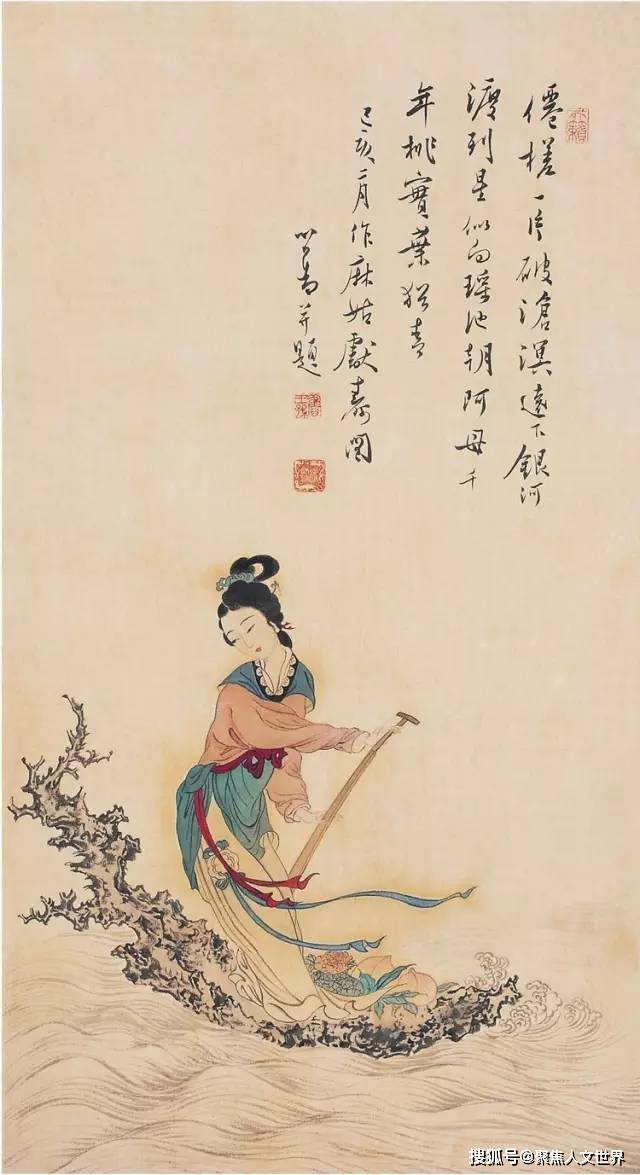 僊槎一片破滄溟遠下銀河
渡列星似向瑤池朝阿母千
年桃實葉猶青
己亥二月作麻姑獻壽圖
心畬并題
搜狐号@聚焦人文世界